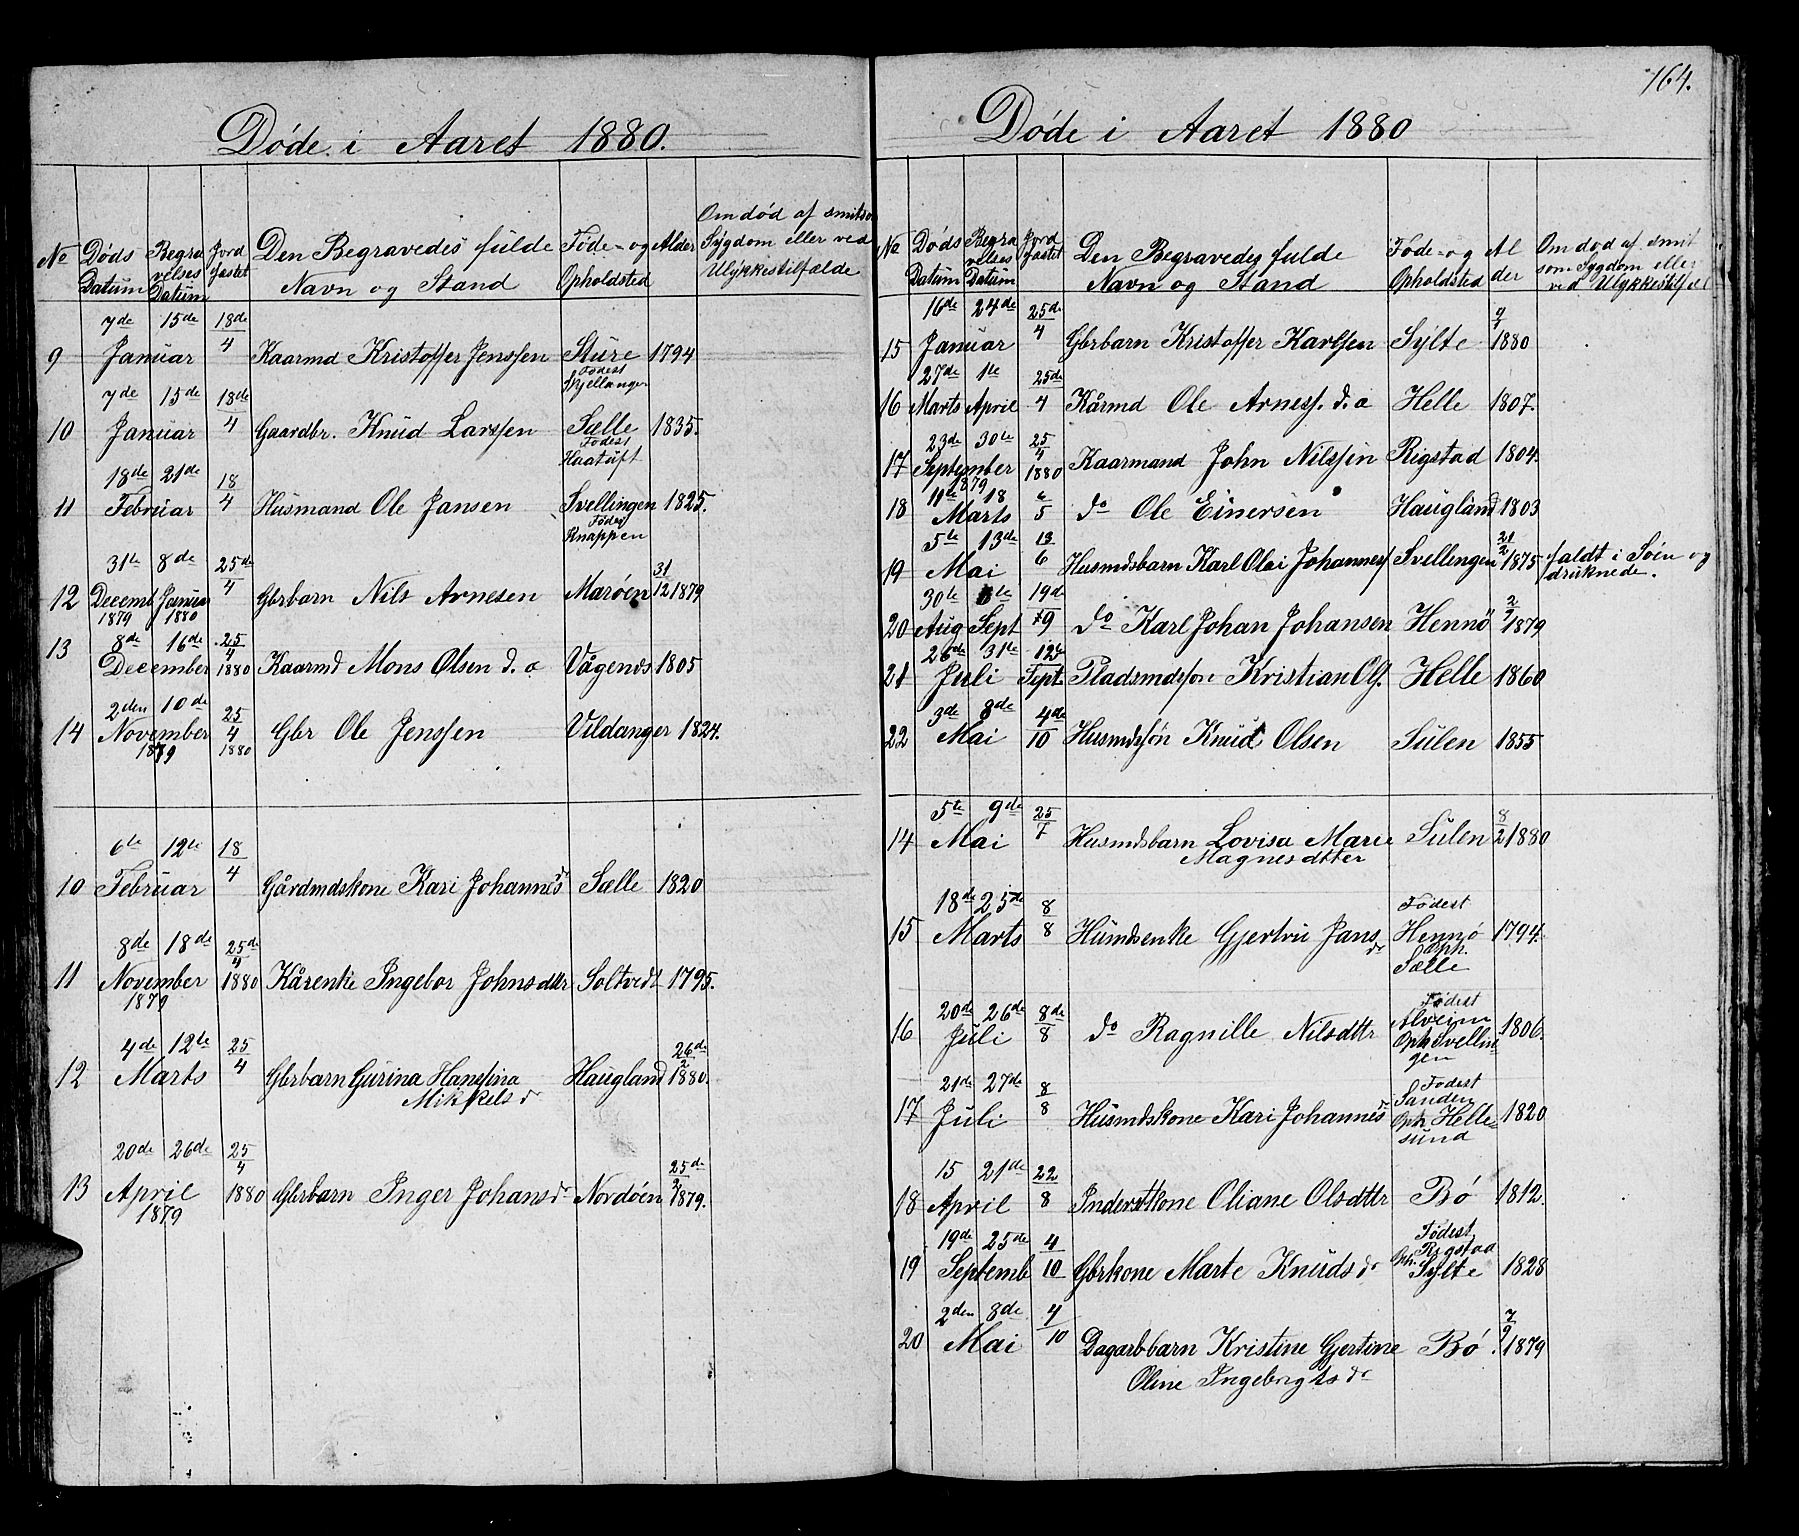 Døde i Aaret 1880.
No Døds Datum Begravelses Datum Jordfastet Den Begravedes fulde Navn og Stand Føde- og Opholdsted Alder Om død af smitsom Sygdom eller ved Ulykkestilfælde
7de 15de 18de
9 Januar 4 Kaarmd Kristoffer Jenssen Sture 1794
Fødest
Kjellanger
7de 15de 18de
10 Januar 4 Gaardbr. Knud Larssen Sælle 1835.
Fødest
Haatuft
18de 21de 18
11 Februar 4 Husmand Ole Jansen Svellingen 1825.
Fødest
Knappen
31te 8de 25de 31
12 Decemb Januar 4 Gbrbarn Nils Arnesen Marøen 12 1879
1879 1880
8de 16de 25
13 December 4 1880 Kaarmd Mons Olsen d. a Vågenes 1805
2den 10de 25
14 November 4 Gbr Ole Jenssen Vildanger 1824.
1879 1880
6te 12te 18
10 Februar 4 Gårdmdskone Kari Johannesdr Sælle 1820
8de 18de 25de
11 November 4 1880 Kårenke Ingebor Johnsdttr Soltvedt 1795.
1879
4de 12te 25 26de
12 Marts 4 Gbrbarn Gurina Hanssina Haugland 2 1880.
Mikkelsdr
20de 26de 25 25de
13 April 4 1880 Gbrbarn Inger Johansdr Nordøen 1879.
1879
164.
Døde i Aaret 1880
No Døds Datum Begravelses Datum Jordfastet Den Begravedes fulde Navn og Stand Føde- og Opholdsted Alder Om død af smitsom Sygdom eller ved Ulykkestilfæl
16de 24de 25de
15 Januar 4 Gbrbarn Kristoffer Karlssen Sylte 1880
27de 1te 25de
16 Marts April 4 Kårmd Ole Arness. d. a Helle 1807.
23de 30te 25
17 September 4 1880 Kaarmand John Nilssen Rigstad 1804.
1879
11te 18 6
18 Marts 5 do Ole Einersen Haugland 1803
5te 13de 13 21
19 Mai 6 Husmdsbarn Karl Olai Johanness Svellingen 2 1875 faldt i Søen og
druknede.
30te 19de 2
20 Aug Sept 9 do Karl Johan Johansen Hennö 1879
26de 31te 12te
21 Juli Sept Pladsmdssøn Kristian Ols. Helle 1860
3de 8de 4de
22 Mai 10 Husmdssøn Knud Olsen Sulen 1855
5te 9de 25 8
14 Mai 7 Husmdsbarn Lovisa Marie Sulen 2 1880
Magnesdtter
18de 25de 8 Fødest
15 Marts 8 Husmdsenke Gjertru Jansdr Hennø 1794.
Oph.
Sælle
20de 26de 8de Fødest
16 Juli 8 do Ragnille Nilsdttr Alveim 1806.
Oph Svellingen
21de 27de 8 Fødest
17 Juli 8 Husmdskone Kari Johannesdr Sanden 1820
Oph Hellesund
15 21de 22
18 April 8 Inderstkone Oliane Olsdttr Bö 1812.
19de 25de 4 Fødest
19 Septemb 10 Gbrkone Marte Knudsdr Rigstad 1828
Oph. Sylte
2den 8de 4 7
20 Mai 10 Dagarbbarn Kristine Gjertine Bö. 9 1879
Oline Ingebrigtsdr